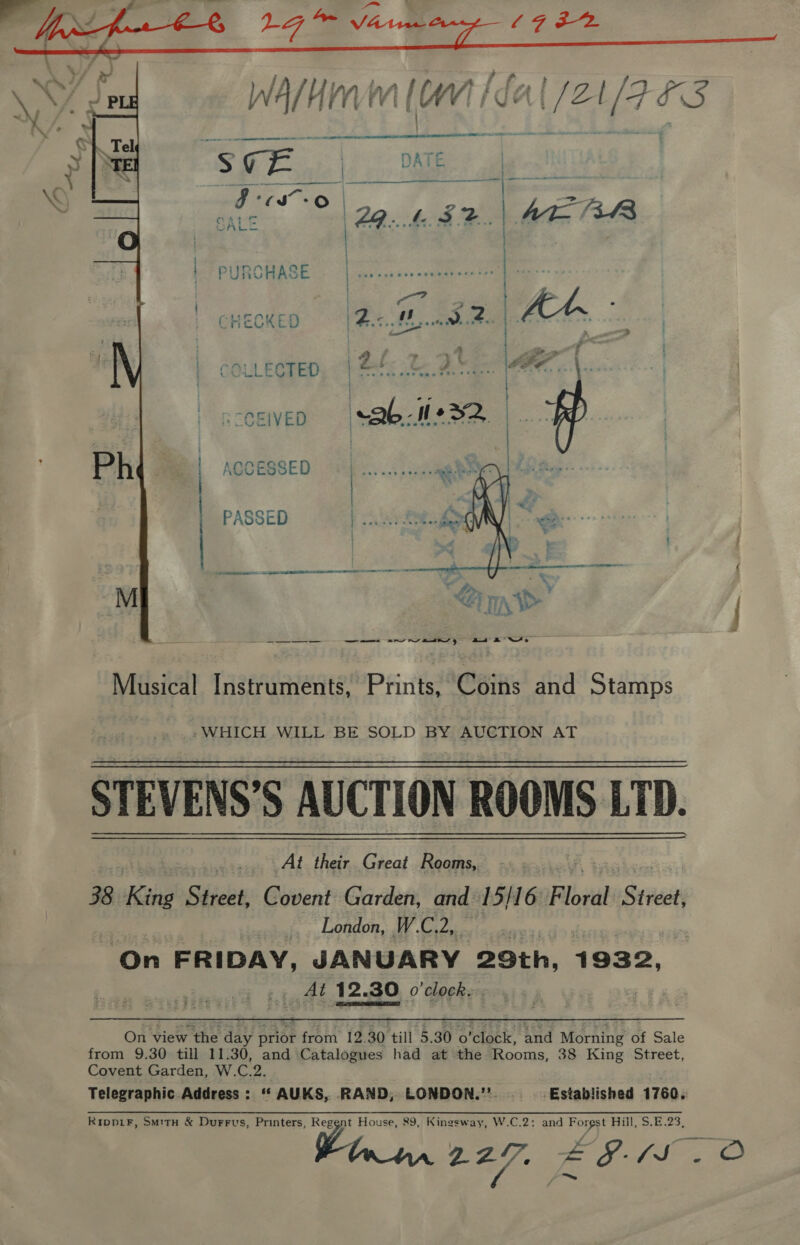 29th January 1932
WA/HMM/CM/Sal/21/783
PLE
Tel
TEL
SCE DATE INITIALS
SALE 29.1.32
PURCHASE
CHECKED
COLLECTED
RECEIVED
ACCESSED
PASSED
M
Ph
M
Musical Instruments, Prints, Coins and Stamps
WHICH WILL BE SOLD BY AUCTION AT
STEVENS'S AUCTION ROOMS LTD.
At their Great Rooms,
38 King Street, Covent Garden, and 15/16 Floral Street,
London, W.C.2,
On FRIDAY, JANUARY 29th, 1932,
At 12.30 o'clock.
On view the day prior from 12.30 till 5.30 o'clock, and Morning of Sale
from 9.30 till 11.30, and Catalogues had at the Rooms, 38 King Street,
Covent Garden, W.C.2.
Telegraphic Address : “ AUKS, RAND, LONDON.” Established 1760.
RIDDLE, SMITH & DUFFUS, Printers, Regent House, 89, Kingsway, W.C.2; and Forest Hill, S.E.23,
227. £8.15.0